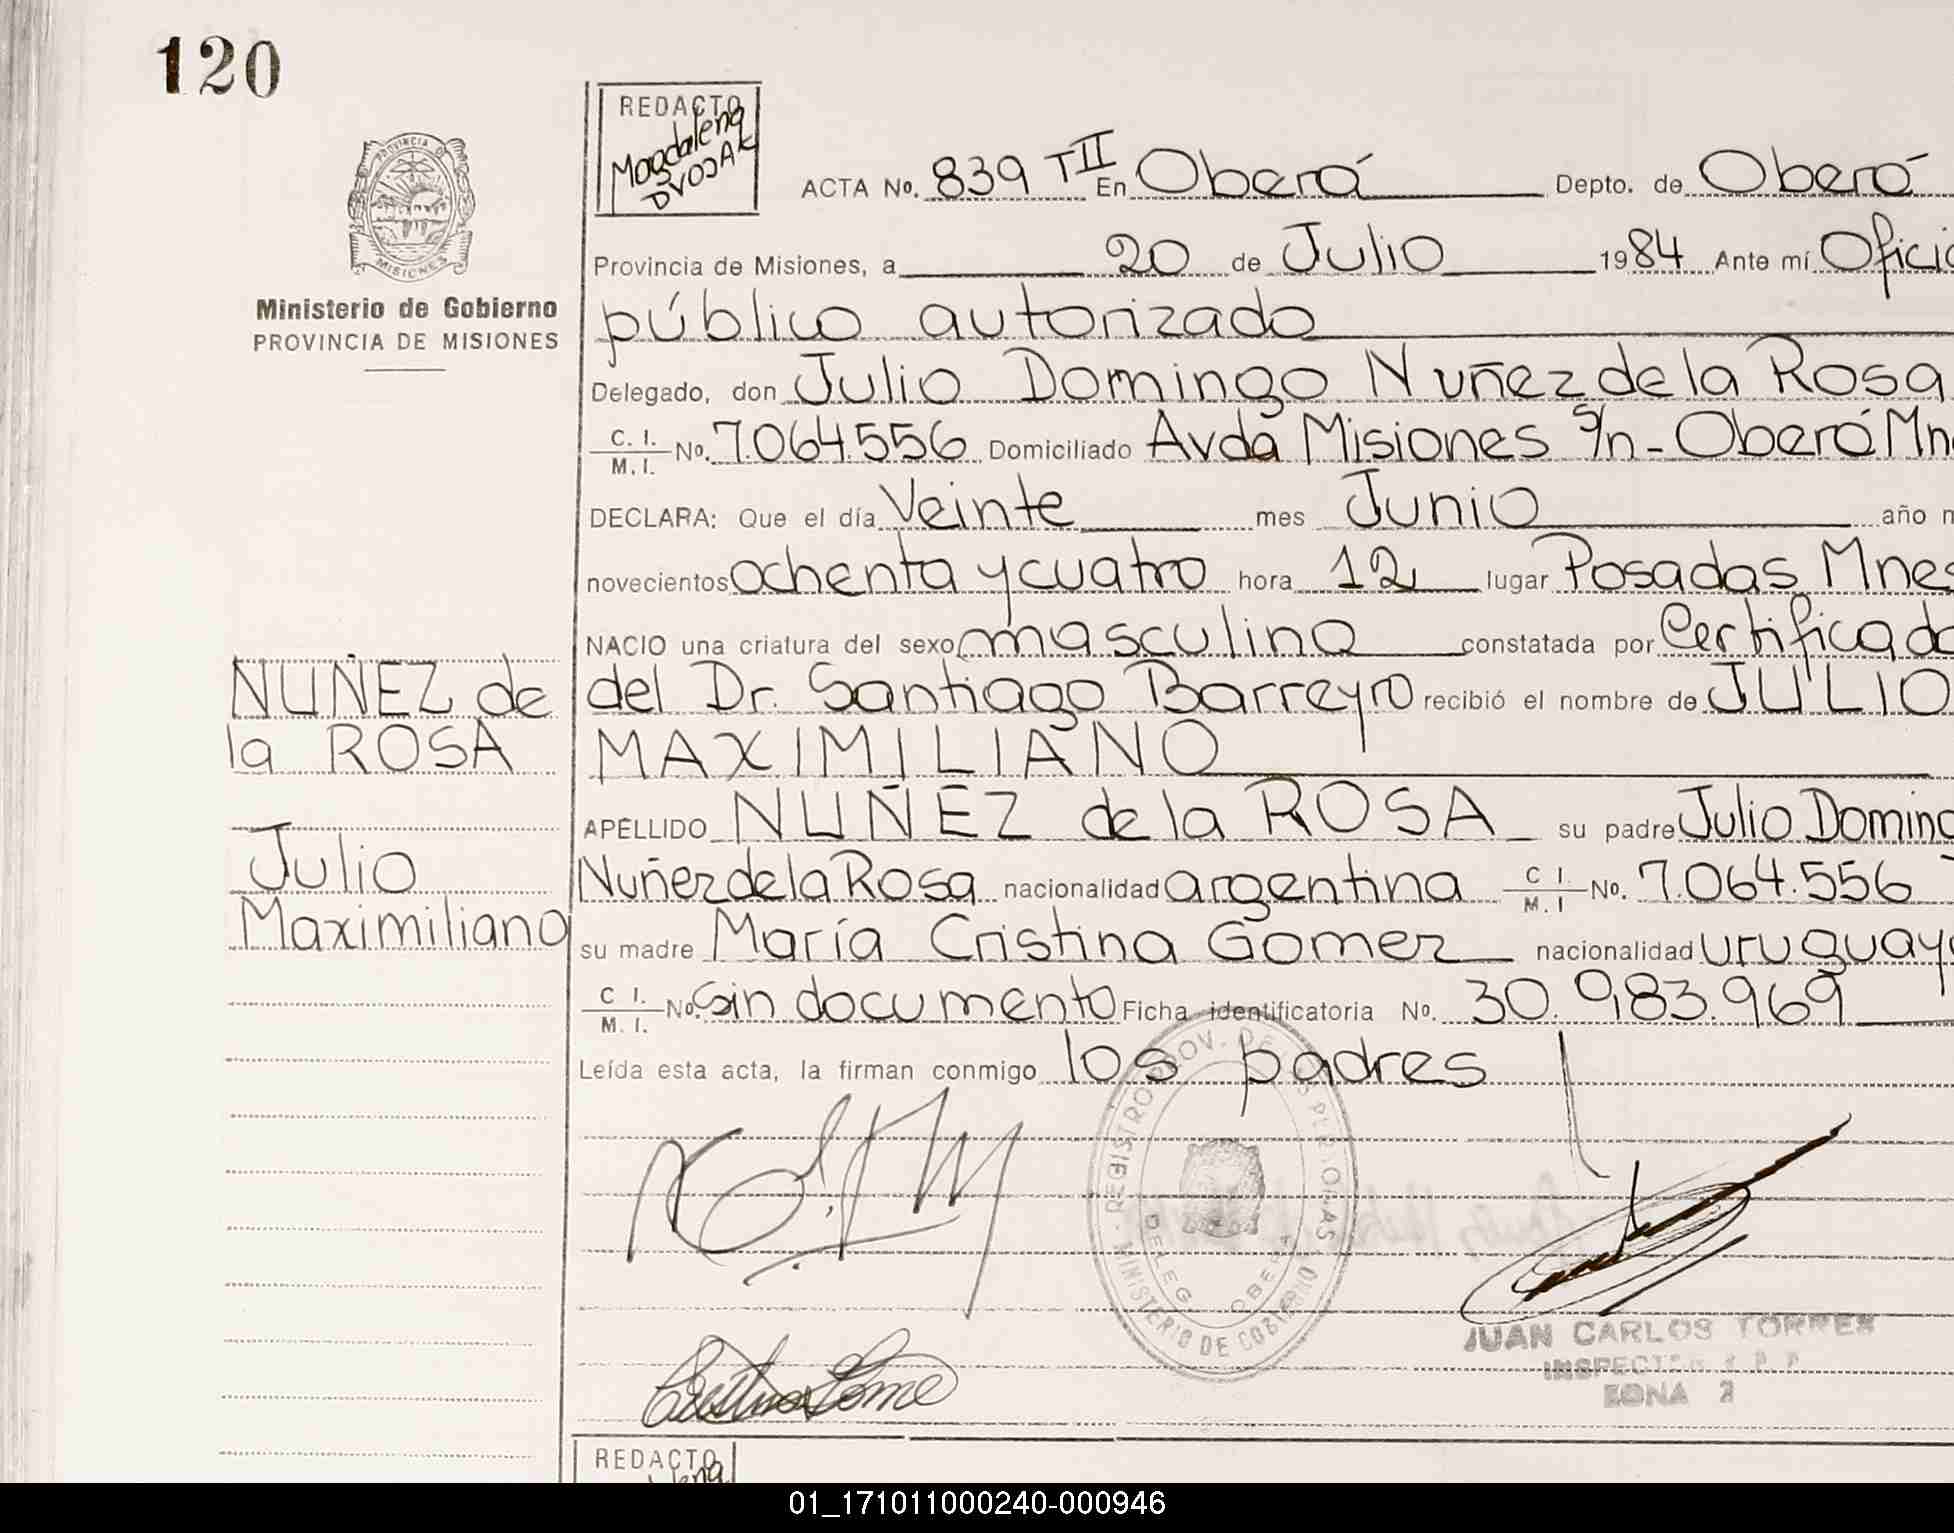 120
REDACTO
Magdalena
DVOJAK
PROVINCIA DE
MISIONES
Ministerio de Gobierno
PROVINCIA DE MISIONES
ACTA No. 839 TII En Oberá Depto. de Oberá
Provincia de Misiones, a 20 de Julio 1984 Ante mí Oficia
público autorizado
Delegado, don Julio Domingo Nuñez de la Rosa
C. I.
M. I. No. 7.064.556 Domiciliado Avda Misiones s/n - Oberá Mne
DECLARA: Que el día Veinte mes Junio año m
novecientos ochenta y cuatro hora 12 lugar Posadas Mnes
NACIO una criatura del sexo masculino constatada por Certificado
del Dr. Santiago Barreyro recibió el nombre de JULIO
MAXIMILIANO
NUÑEZ de
la ROSA
Julio
Maximiliano
APELLIDO NUÑEZ de la ROSA su padre Julio Doming
Nuñez de la Rosa nacionalidad argentina C I. M. I No. 7.064.556
su madre María Cristina Gomez nacionalidad uruguaya
C I.
M. I. No. Sin documento Ficha identificatoria No. 30.983.969
Leída esta acta, la firman conmigo los padres
REGISTRO PROV. DE LAS PERSONAS
MINISTERIO DE GOBIERNO
DELEG OBERA
JUAN CARLOS TORRES
INSPECTOR R P P
ZONA 2
REDACTO
01_171011000240-000946